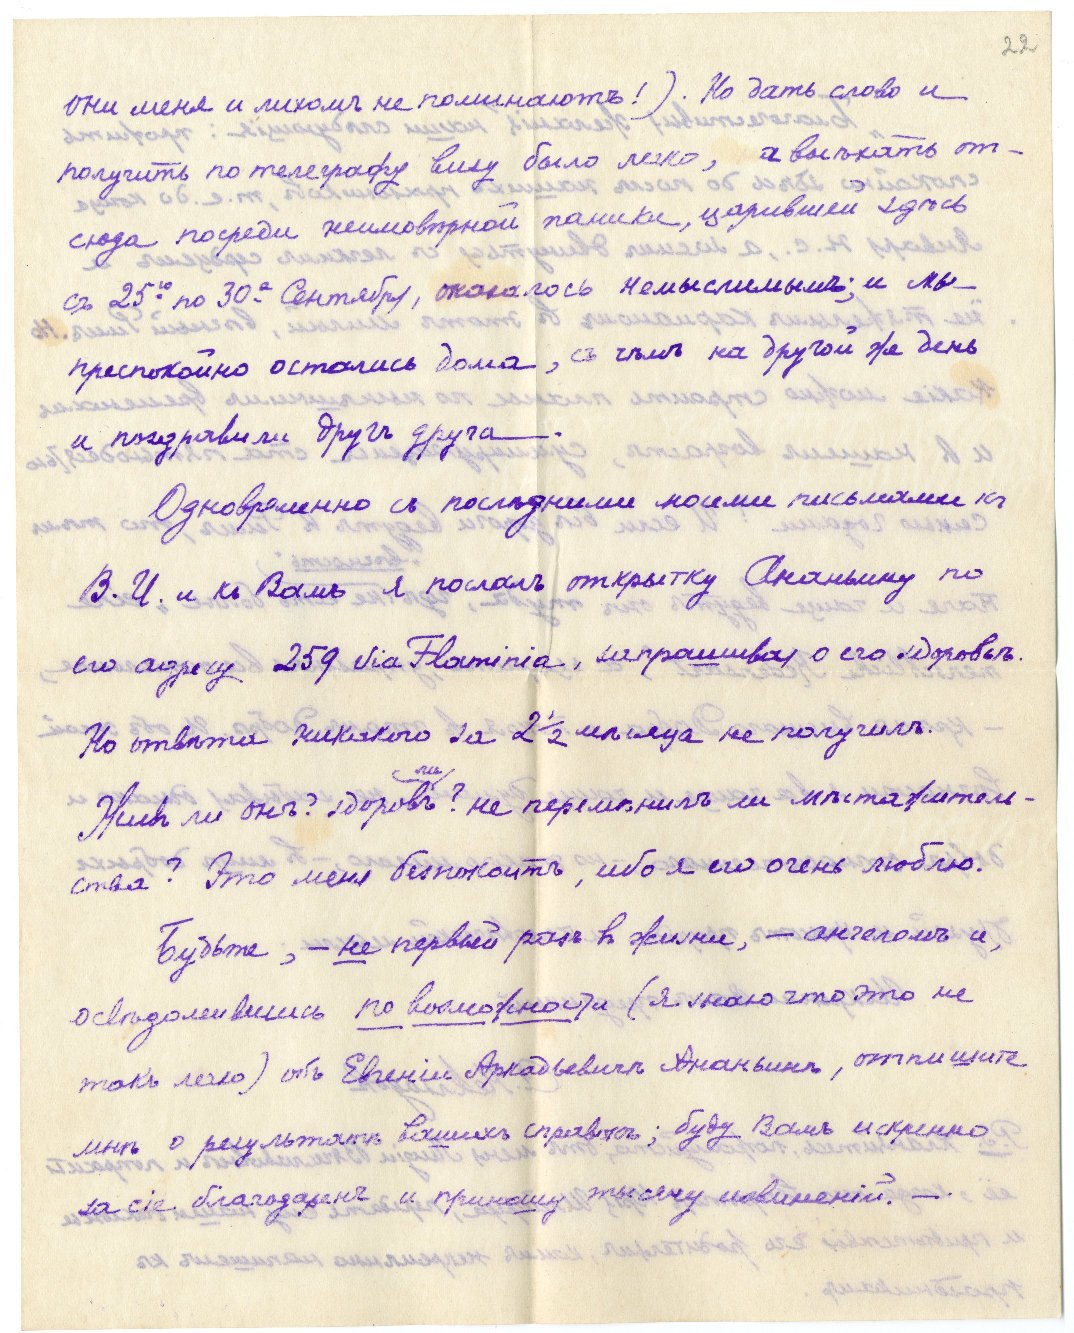 22
они меня и лихомъ не поминаютъ!). Но дать слово и
получить по телеграфу визу было легко, а выѣхать от-
сюда посреди неимовѣрной паники, царившей здѣсь
съ 25го по 30е Сентября, оказалось немыслимымъ; и мы
преспокойно остались дома, съ чѣмъ на другой же день
и поздравили другъ друга —.
Одновременно съ послѣдними моими письмами къ
В.И. и къ Вамъ я послалъ открытку Ананьину по
его адресу 259 via Flaminia, запрашивая о его здоровьѣ.
Но отвѣта никакого за 2 1/2 мѣсяца не получилъ.
Живъ ли онъ? здоровъ ли? не перемѣнилъ ли мѣстажитель-
ства? Это меня безпокоитъ, ибо я его очень люблю.
Будьте, — не первый разъ въ жизни, — ангеломъ и,
освѣдомившись по возможности (я знаю что это не
такъ легко) объ Евгеніи Аркадьевичѣ Ананьинѣ, отпишите
мнѣ о результатѣ вашихъ справокъ; буду Вамъ искренно
за сіе благодаренъ и приношу тысячу извиненій. —.